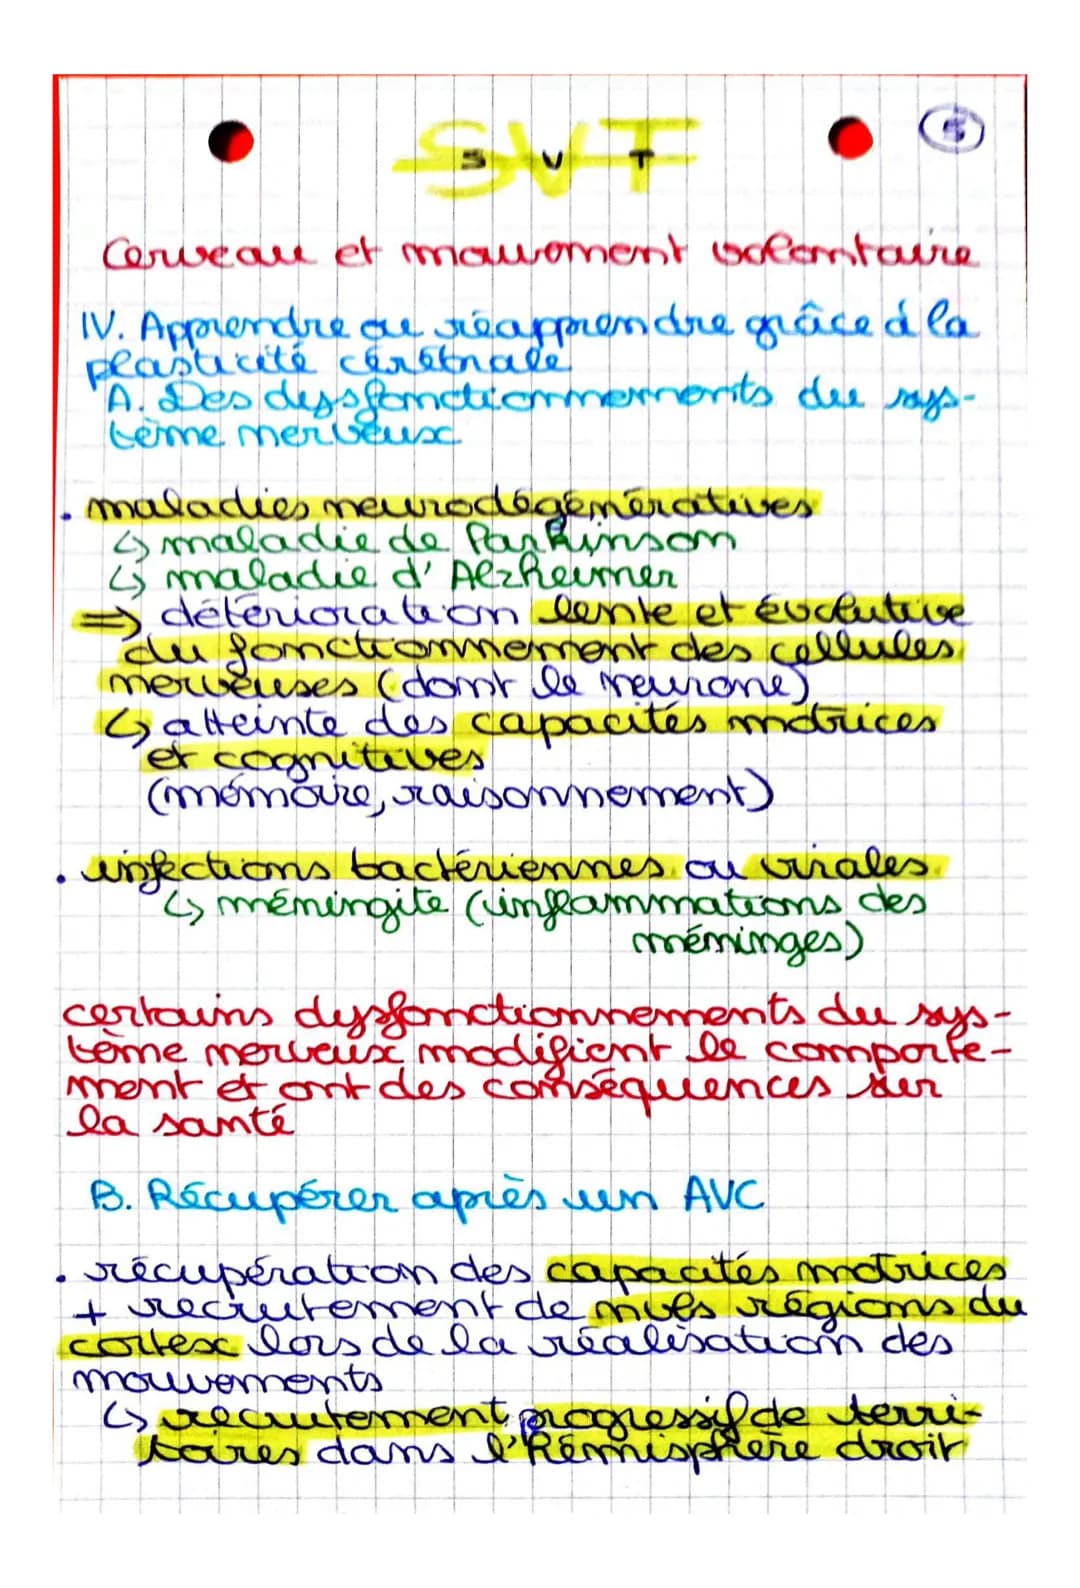 5
SVT
S V T
Cerveau et mouvement volontaire
IV. Apprendre ou réapprendre grâce à la
plasticité cérébrale
A. Des dysfonctionnements du sys-
tème nerveux
. maladies neurodégénératives
↳ maladie de Parkinson
↳ maladie d'Alzheimer
⇒ détérioration lente et évolutive
du fonctionnement des cellules
nerveuses (dont le neurone)
↳ atteinte des capacités motrices
et cognitives
(mémoire, raisonnement)
. infections bactériennes ou virales
↳ méningite (inflammations des
méninges)
certains dysfonctionnements du sys-
tème nerveux modifient le comporte-
ment et ont des conséquences sur
la santé
B. Récupérer après un AVC
. récupération des capacités motrices
+ recrutement de nvles régions du
cortex lors de la réalisation des
mouvements
↳ recrutement progressif de terri-
toires dans l'hémisphère droit